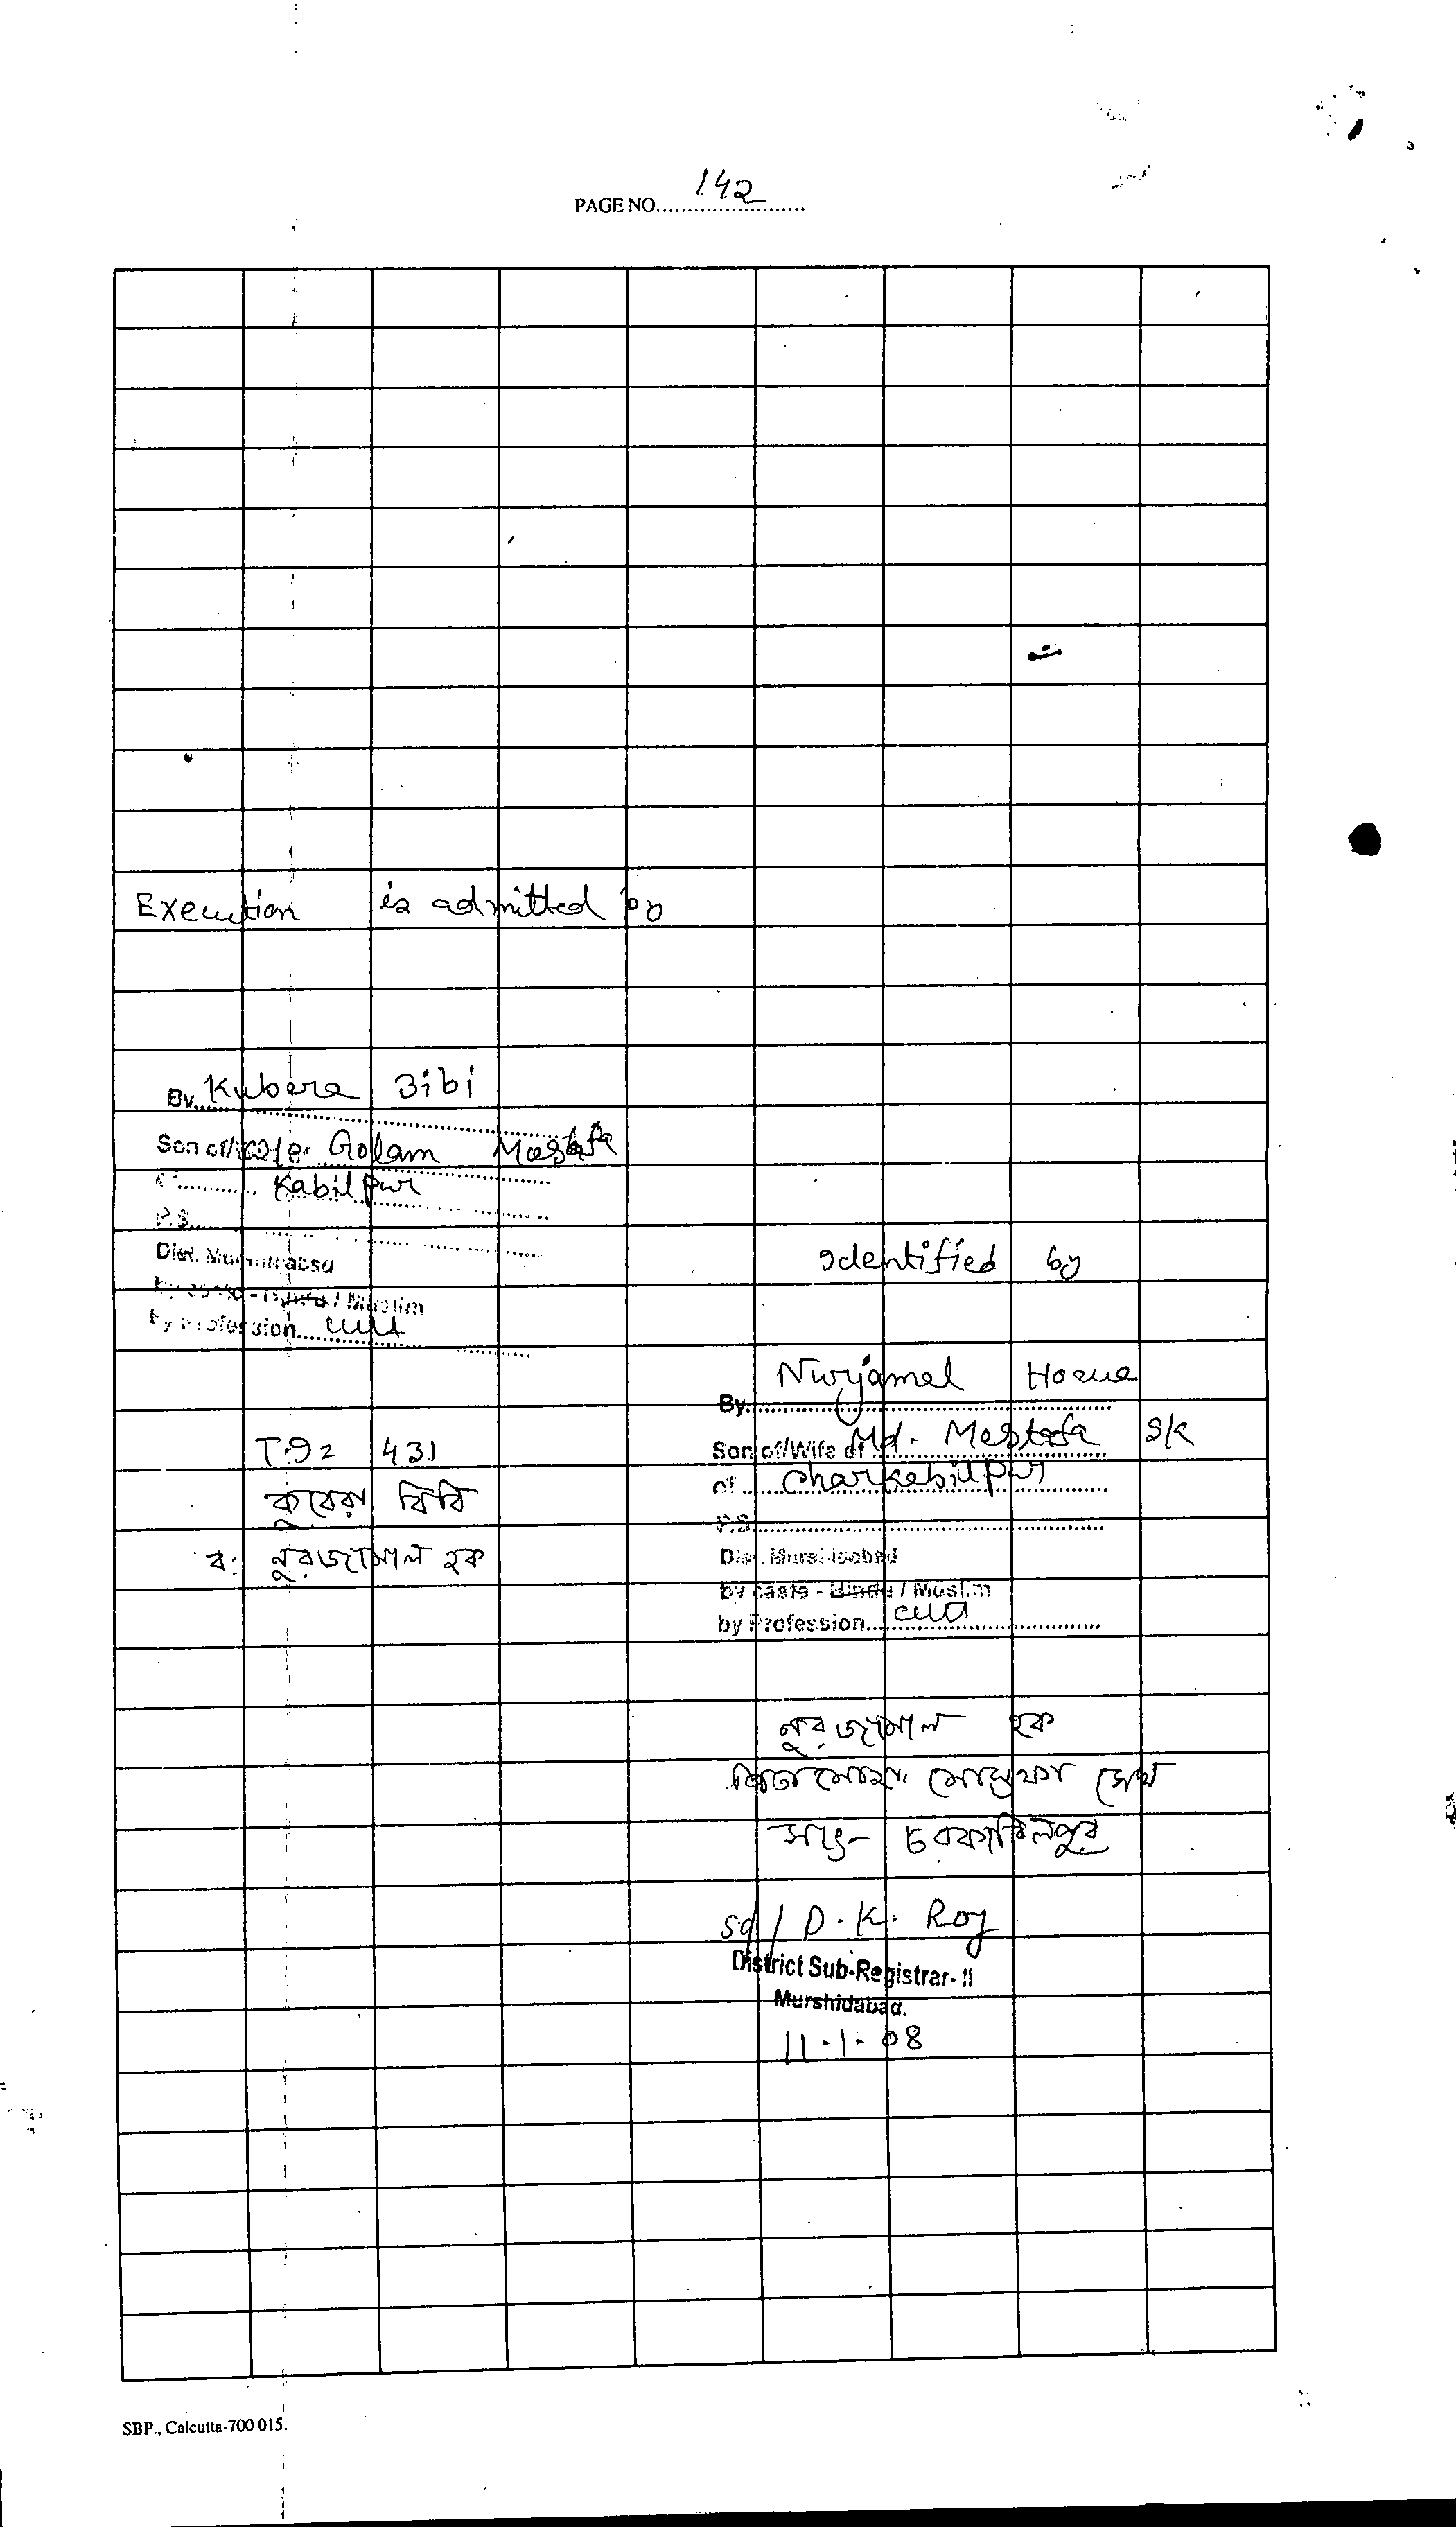 PAGE NO. 142
Execution is admitted by
By Kubera Bibi
Son of/W/o Golam Mostafa
of Kabilpur
P.S.
Dist. Murshidabad
by caste - Hindu / Muslim
by Profession
Identified by
Nurjamal Hoque
By
Son of/Wife of Md. Mostafa Sk
of Charkabilpur
P.S.
Dist. Murshidabad
by caste - Hindu / Muslim
by Profession
431
কুবেরা বিবি
ব: নুরজামাল হক
নুরজামাল হক
পিতা মোহাঃ মোস্তফা সেখ
সাং- চরকাবিলপুর
Sd/ D. K. Roy
District Sub-Registrar- II
Murshidabad.
11.1.08
SBP., Calcutta-700 015.